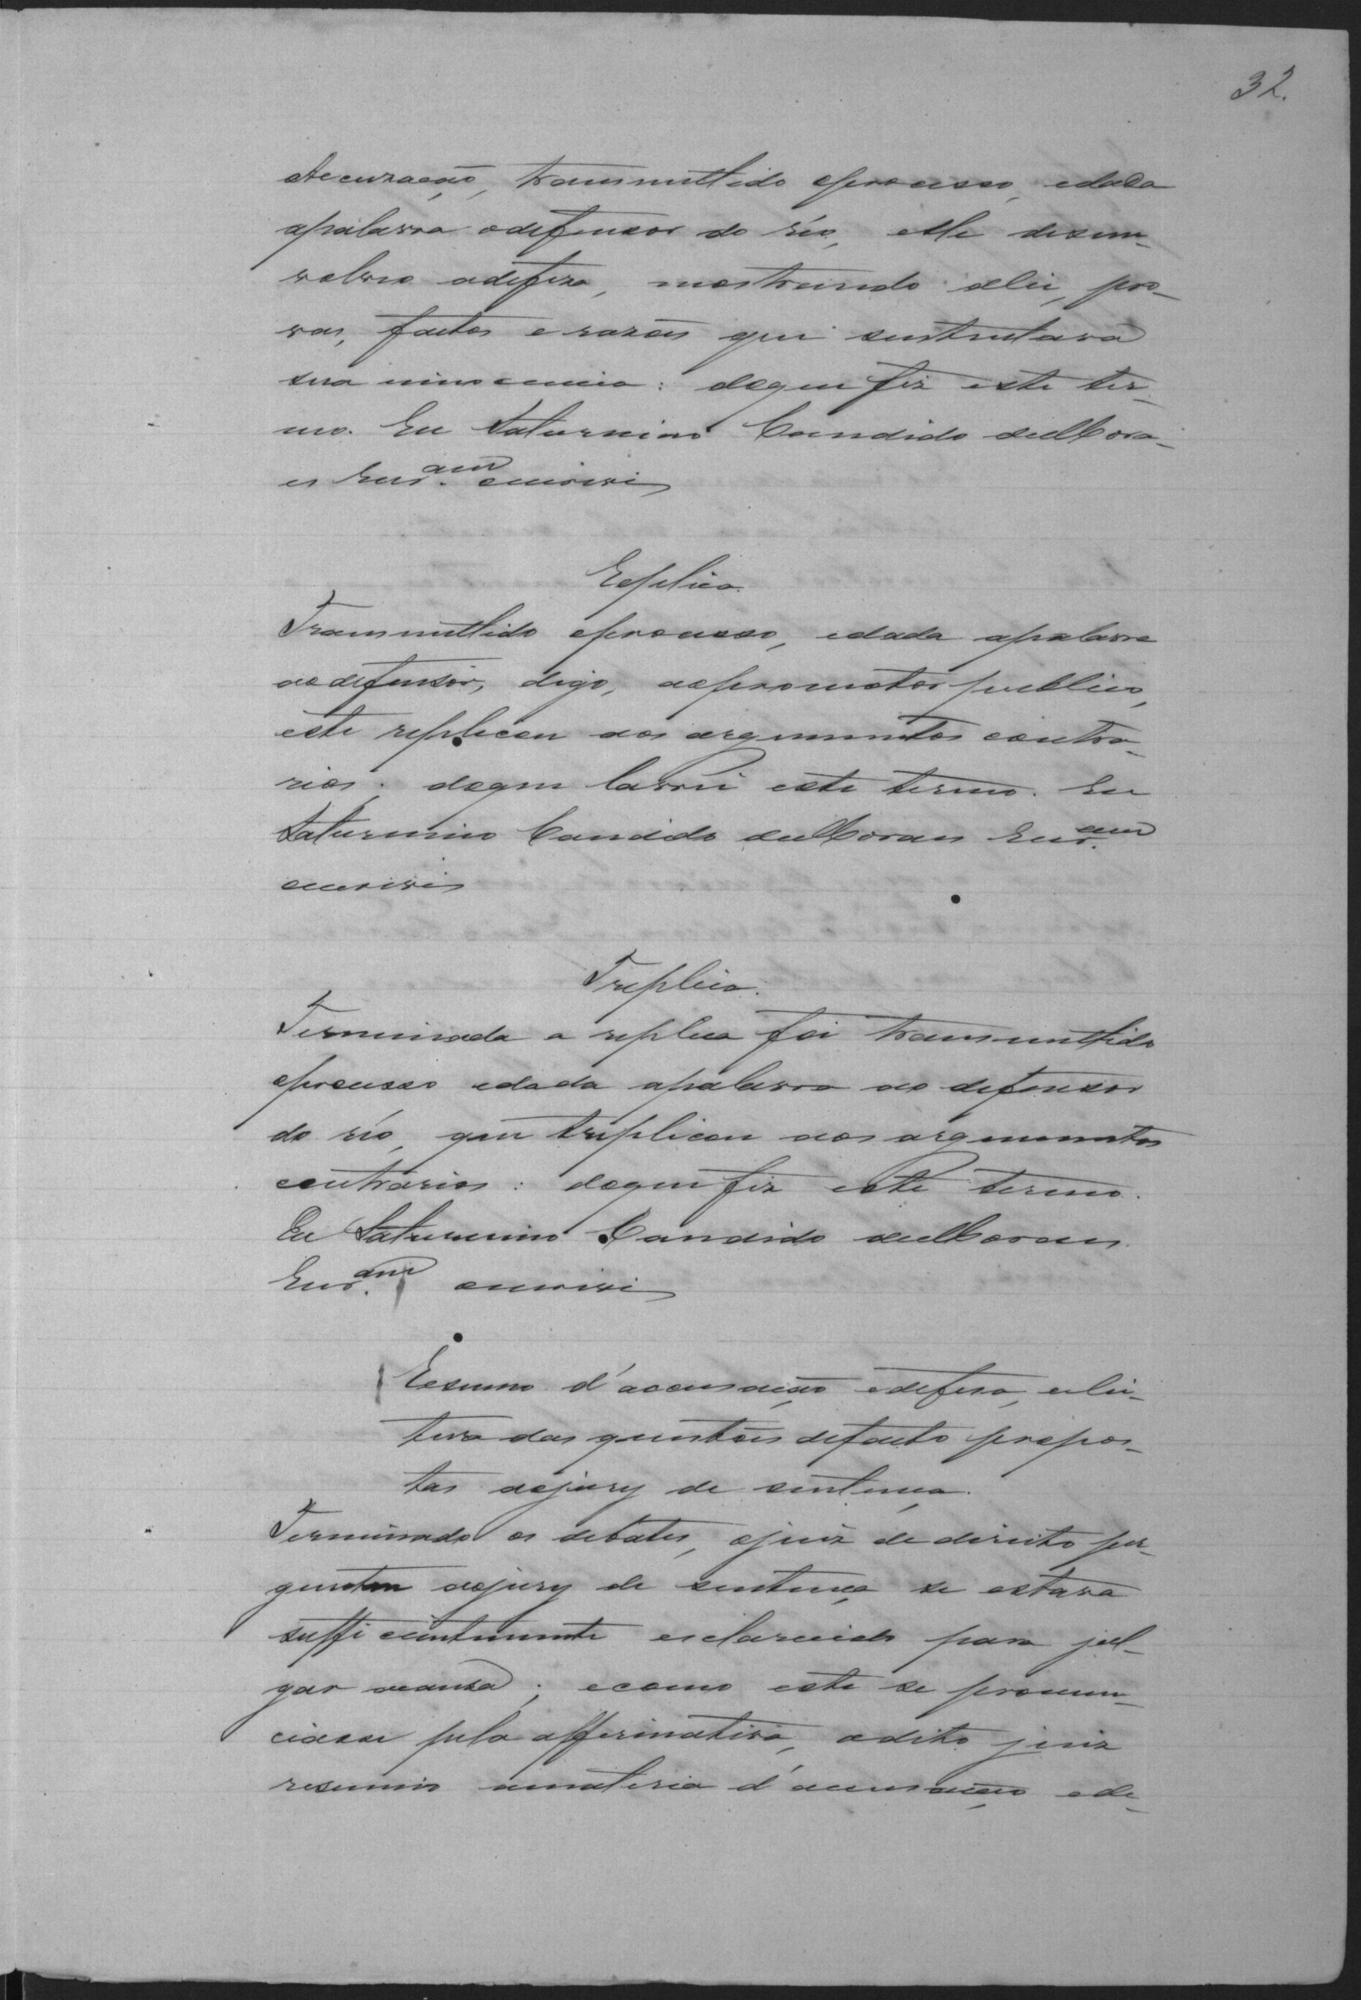 32.
Accuzação, transmittido oprocesso, edada
apalavra aodefensor do réo, elle desem-
volveo adefeza, mostrando a lei, pro-
vas, factos e razões que sustentava
sua innocencia: doque fiz este ter-
mo. Eu Saturnino Candido de Mora-
es Escr.am escrivi
Replica
Transmittido oprocesso, edada apalavra
aodefensor, digo, aopromotor publico,
este replicou aos argumentos contra-
rios: doque lavrei este termo. Eu
Saturnino Candido de Moraes Escr.am
escrivi
Treplica.
Terminada a replica foi transmittido
oprocesso edada apalavra ao defensor
do réo, que treplicou aos argumentos
contrarios: doque fiz este termo.
Eu Saturnino Candido de Moraes
Escr.am escrivi
Resumo d'accusação edefesa, e lei-
tura das questões defacto propos-
tas aojury de sentença.
Terminado os debates, ojuiz de direito per-
guntou aojury de sentença se estava
sufficientemente esclarecido para jul-
gar acausa; ecomo este se pronun-
ciasse pela affirmativa, odito juiz
resumio amateria d'accusação ede-